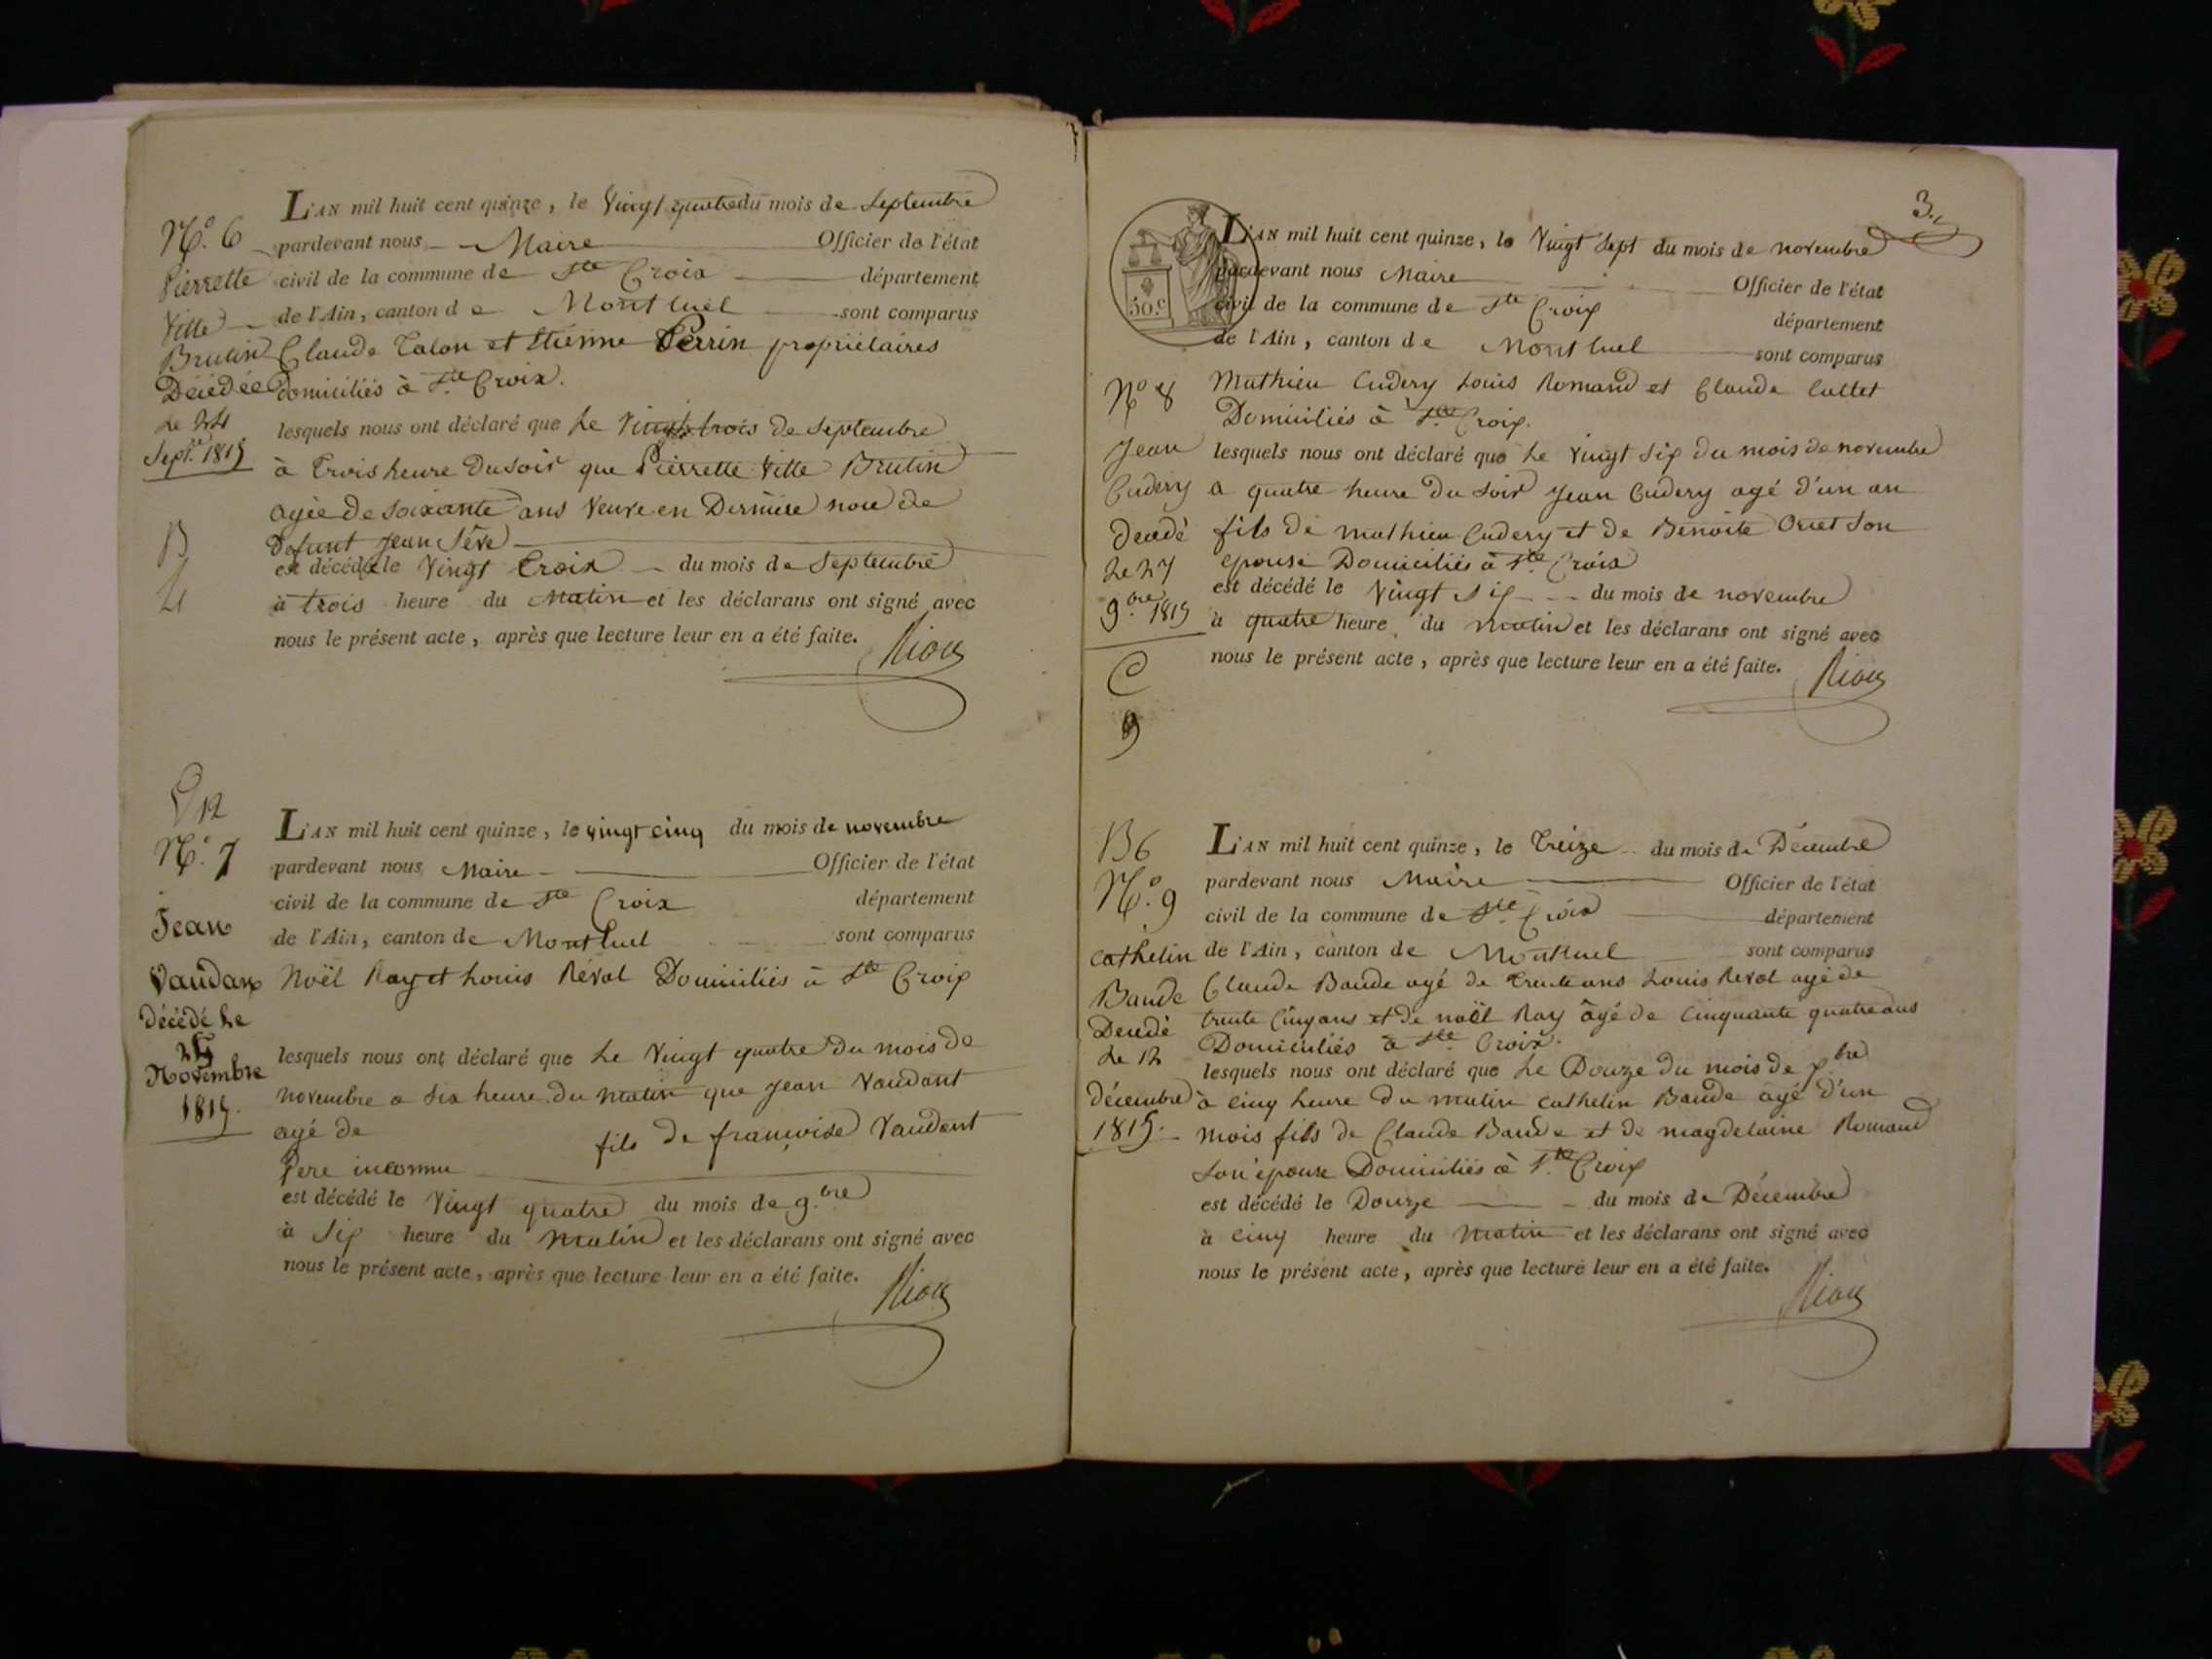 N.º 6
Pierrette
Ville
Brutin
Décédée
Le 24
Sept.re 1815
L'AN mil huit cent quinze, le Vingt quatre du mois de Septembre
pardevant nous Maire Officier de l'état
civil de la commune de Ste Croix département
de l'Ain, canton de Montluel sont comparus
Claude Talon et Etienne Perrin propriétaires
domiciliés à Ste Croix.
lesquels nous ont déclaré que Le Vingt trois de Septembre
à Trois heure Du soir que Pierrette Ville Brutin
agée de soixante ans Veuve en Dernière noce de
Defunt Jean Sève
est décédée le Vingt Trois du mois de Septembre
à trois heure du Matin et les déclarans ont signé avec
nous le présent acte, après que lecture leur en a été faite.
N.º 7
Jean
Vaudan
Décédé Le
Novembre
1815.
L'AN mil huit cent quinze, le vingt cinq du mois de novembre
pardevant nous Maire Officier de l'état
civil de la commune de Ste Croix département
de l'Ain, canton de Montluel sont comparus
Noël Ray et Louis Réval Domiciliés à Ste Croix
lesquels nous ont déclaré que Le Vingt quatre Du mois de
novembre a six heure du matin que Jean Vaudant
agé de fils de françoise Vaudant
Pere inconnu
est décédé le Vingt quatre du mois de 9.bre
à Six heure du Matin et les déclarans ont signé avec
nous le présent acte, après que lecture leur en a été faite.
3.
50.c
N.º 8
Jean
Cudery
decedé
Le 27
9.bre 1815
C
9
L'AN mil huit cent quinze, le Vingt Sept du mois de novembre
pardevant nous Maire Officier de l'état
civil de la commune de Ste Croix département
de l'Ain, canton de Montluel sont comparus
Mathieu Cudery Louis Romand et Claude Callet
Domiciliés à Ste Croix.
lesquels nous ont déclaré que Le Vingt Six du mois de novembre
a quatre heure Du Soir Jean Cudery agé d'un an
fils de mathieu Cudery et de Benoite Oriet Son
epouse Domiciliés à Ste Croix
est décédé le Vingt Six du mois de novembre
à quatre heure du matin et les déclarans ont signé avec
nous le présent acte, après que lecture leur en a été faite.
B6
N.º 9
Cathelin
Baude
Decedé
Le 12
décembre
1815.
L'AN mil huit cent quinze, le Treize du mois de Décembre
pardevant nous Maire Officier de l'état
civil de la commune de Ste Croix département
de l'Ain, canton de Montluel sont comparus
Claude Baude agé de trente ans Louis Reval agé de
trente Cinq ans et de noël Ray âgé de Cinquante quatre ans
Domiciliés à Ste Croix.
lesquels nous ont déclaré que Le Douze du mois de Xbre
à cinq heure du matin Cathelin Baude agé d'un
mois fils de Claude Baude et de magdelaine Romand
Son epouse Domiciliés à Ste Croix
est décédé le Douze du mois de Décembre
à cinq heure du Matin et les déclarans ont signé avec
nous le présent acte, après que lecture leur en a été faite.